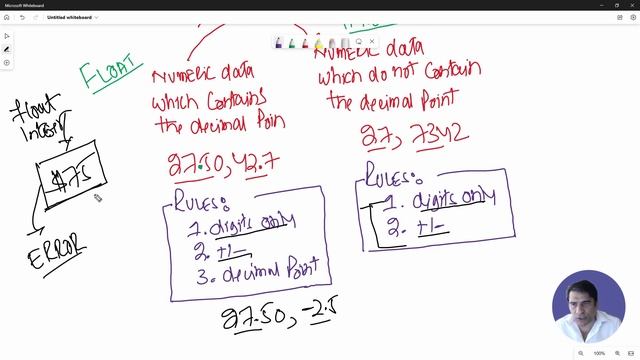 Microsoft Whiteboard
Untitled whiteboard
FLOAT
Numeric data
which contains
the decimal Poin
27.50, 42.7
RULES:
1. digits only
2. +/-
3. decimal Point
27.50, -2.5
Numeric data
which do not contain
the decimal Point
27, 7342
RULES:
1. digits only
2. +/-
float
Integer
$75
ERROR
100%